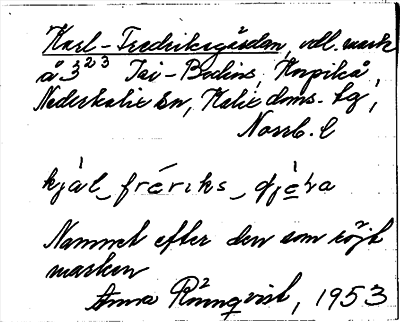 Karl-Fredriksgärdan, odl. mark
å 3²³ Isi-Bodins, Korpikå,
Nederkalix sn, Kalix doms. tg,
Norrb. l
kjàl_frériks_djèḷa
Namnet efter den som röjt
marken
Anna Rönnqvist, 1953